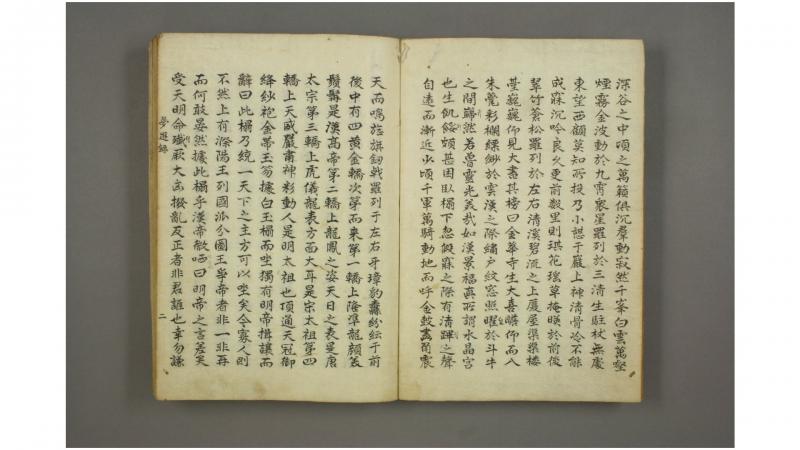 深谷之中頃之萬籟俱沉羣動寂然千峯白雲萬壑
煙霧金波動於九霄衆星羅列於三清生駐杖無處
東望西顧莫知所投乃小憇于巖上神清骨冷不能
成寐沉吟良久更前數里則琪花瑤草掩暎於前後
翠竹蒼松羅列於左右清溪碧流之上廈屋渠渠樓
㙜巍巍仰見大書其榜曰金華寺生大喜瞻仰而入
朱甍彩欄縹緲於雲漢之際繡户紋窓照曜於斗牛
之間巋然若魯靈光美哉如漢景福眞所謂水晶宮
也生飢餒頗甚困臥榻下忽假寐之際有清蹕之聲
自遠而漸近少頃千軍萬騎動地而呼金鼓畫角震
天而鳴旌旗劒戟羅列于左右牙璋豹纛紛紜于前
後中有四黄金轎次第而来第一轎上隆準龍顔美
鬚髯是漢高帝第二轎上龍鳳之姿天日之表是唐
太宗第三轎上虎儀龍表方面大耳是宋太祖第四
轎上天威嚴肅神彩動人是明太祖也頂通天冠御
絳紗袍金帶玉笏據白玉榻而坐獨有明帝揖讓而
辭曰此榻乃統一天下之主方可以坐矣令寡人則
不然上有滁陽王列國瓜分圖王爭帝者非一非再
而何敢晏然據此榻乎漢帝微哂曰明帝之言差矣
受天明命殱厥大凶撥亂反正者非君誰也幸勿謙
夢遊錄
二